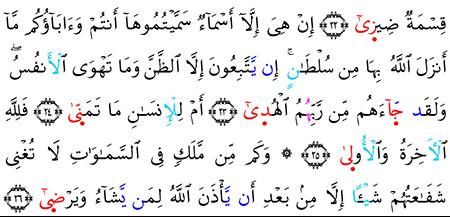 قِسْمَةٌ ضِيزىٰٓ ﴿٢٢﴾ إِنْ هِىَ إِلَّآ أَسْمَآءٌ سَمَّيْتُمُوهَآ أَنتُمْ وَءَابَآؤُكُم مَّآ
أَنزَلَ ٱللَّهُ بِهَا مِن سُلْطَٰنٍ ۚ إِن يَّتَّبِعُونَ إِلَّا ٱلظَّنَّ وَمَا تَهْوَى ٱلْأَنفُسُ ۖ
وَلَقَد جَّآءَهُم مِّن رَّبِّهُمُ ٱلْهُدىٰٓ ﴿٢٣﴾ أَمْ لِلْإِنسَٰنِ مَا تَمَنّىٰ ﴿٢٤﴾ فَلِلَّهِ
ٱلْأَخِرَةُ وَٱلْأُولىٰ ﴿٢٥﴾ ۞ وَكَم مِّن مَّلَكٍ فِى ٱلسَّمَٰوَٰتِ لَا تُغْنِى
شَفَٰعَتُهُمْ شَيْـًٔا إِلَّا مِنۢ بَعْدِ أَن يَّأْذَنَ ٱللَّهُ لِمَن يَّشَآءُ وَيَرْضىٰٓ ﴿٢٦﴾